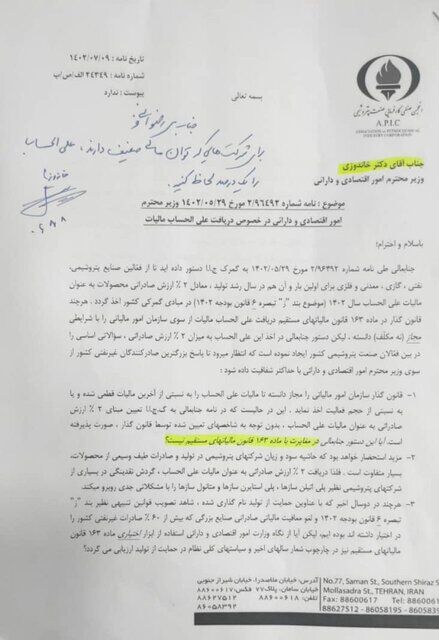 تاریخ نامه : ۱۴۰۲/۰۷/۰۹
شماره نامه : ۲۴۳۴۹/الف/ص/پ
پیوست : ندارد
بسمه تعالی
انجمن صنفی کارفرمایی صنعت پتروشیمی
A.P.I.C
ASSOCIATION OF PETROCHEMICAL
INDUSTRY CORPORATION
برای شرکت‌هایی که توان مالی ضعیف دارند، علی الحساب
را یک درصد لحاظ کنید.
جناب آقای دکتر خاندوزی
وزیر محترم امور اقتصادی و دارانی
موضوع : نامه شماره ۲/۹۶۴۹۲ مورخ ۱۴۰۲/۰۵/۲۹ وزیر محترم
امور اقتصادی و دارانی در خصوص دریافت علی الحساب مالیات
باسلام و احترام؛
جنابعالی طی نامه شماره ۲/۹۶۴۹۲ مورخ ۱۴۰۲/۰۵/۲۹ به گمرک ج.ا.ا دستور داده اید تا از فعالین صنایع پتروشیمی،
نفتی ، گازی ، معدنی و فلزی برای اولین بار و آن هم در سال رشد تولید ، معادل ۲ ٪ ارزش صادراتی محصولات به عنوان
علی الحساب مالیات سال ۱۴۰۲ (موضوع بند "ز" تبصره ۶ قانون بودجه ۱۴۰۲) در مبادی گمرکی کشور اخذ گردد . هرچند
قانون گذار در ماده ۱۶۳ قانون مالیاتهای مستقیم دریافت علی الحساب مالیات از سوی سازمان امور مالیاتی را با شرایطی
مجاز (نه مکلف) دانسته ، لیکن دستور جنابعالی در اخذ این علی الحساب به میزان ۲ ٪ ارزش صادراتی ، سؤالاتی اساسی را
در بین فعّالان صنعت پتروشیمی کشور ایجاد نموده است که انتظار میرود تا پاسخ بزرگترین صادرکنندگان غیرنفتی کشور از
سوی وزیر محترم امور اقتصادی و دارانی با حداکثر شفافیت داده شود :
۱- قانون گذار سازمان امور مالیاتی را مجاز دانسته تا مالیات علی الحساب را به نسبتی از آخرین مالیات قطعی شده و یا
به نسبتی از حجم فعالیت اخذ نماید . این در حالیست که در نامه جنابعالی به گ.ج.ا.ا تعیین مبنای ۲ ٪ ارزش
صادراتی به عنوان مالیات علی الحساب ، بدون توجه به شاخصهای تعیین شده توسط قانون گذار ، صورت پذیرفته
است. آیا این دستور جنابعالی در مغایرت با ماده ۱۶۳ قانون مالیاتهای مستقیم نیست؟
۲- مزید استحضار خواهد بود که حاشیه سود و زیان شرکتهای پتروشیمی در تولید و صادرات طیف وسیعی از محصولات،
بسیار متفاوت است . فلذا دریافت ۲ ٪ ارزش صادراتی به عنوان مالیات علی الحساب ، گردش نقدینگی در بسیاری از
شرکتهای پتروشیمی نظیر پلی اتیلن سازها ، پلی استایرن سازها و متانول سازها را با مشکلاتی جدی روبرو میکند.
۳- هرچند در دوسال اخیر که با عناوین حمایت از تولید نام گذاری شده ، شاهد تصویب قوانین تنبیهی نظیر بند "ز"
تبصره ۶ قانون بودجه ۱۴۰۲ و لغو معافیت مالیاتی صادراتی صنایع بزرگی که بیش از ۶۰ ٪ صادرات غیرنفتی کشور را
در اختیار داشته اند بوده ایم، لیکن آیا از نگاه وزارت امور اقتصادی و دارانی استفاده از ابزار اختیاری ماده ۱۶۳ قانون
مالیاتهای مستقیم نیز در چارچوب شعار سالهای اخیر و سیاستهای کلی نظام در حمایت از تولید ارزیابی می گردد؟
آدرس : خیابان ملاصدرا، خیابان شیراز جنوبی
خیابان سامان، پلاک ۷۷ فکس : ۸۸۶۰۰۶۱۷
تلفن : ۸۸۶۰۰۶۱۸ ۸۸۶۲۷۵۱۲
۸۶۰۵۸۳۹۲
No.77, Saman St., Southern Shiraz S
Mollasadra St., TEHRAN, IRAN
Fax: 88600617 Tel: 8860061
88627512 - 86058195 - 8605839